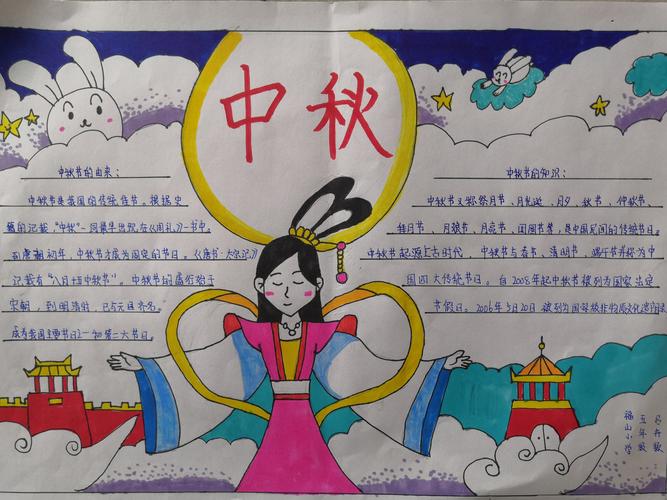 中秋
中秋节的由来：
中秋节是我国的传统佳节。根据史
籍的记载，“中秋”一词最早出现在《周礼》一书中。
到唐朝初年，中秋节才成为固定的节日。《唐书·太宗记》
记载有“八月十五中秋节”。中秋节的盛行始于
宋朝，到明清时，已与元旦齐名，
成为我国主要节日之一和第二大节日。
中秋节的知识：
中秋节又称祭月节、月光诞、月夕、秋节、仲秋节、
拜月节、月娘节、月亮节、团圆节等，是中国民间的传统节日。
中秋节起源上古时代，中秋节与春节、清明节、端午节并称为中
国四大传统节日。自2008年起中秋节被列为国家法定
节假日。2006年5月20日被列为国家级非物质文化遗产
福山小学
五年级